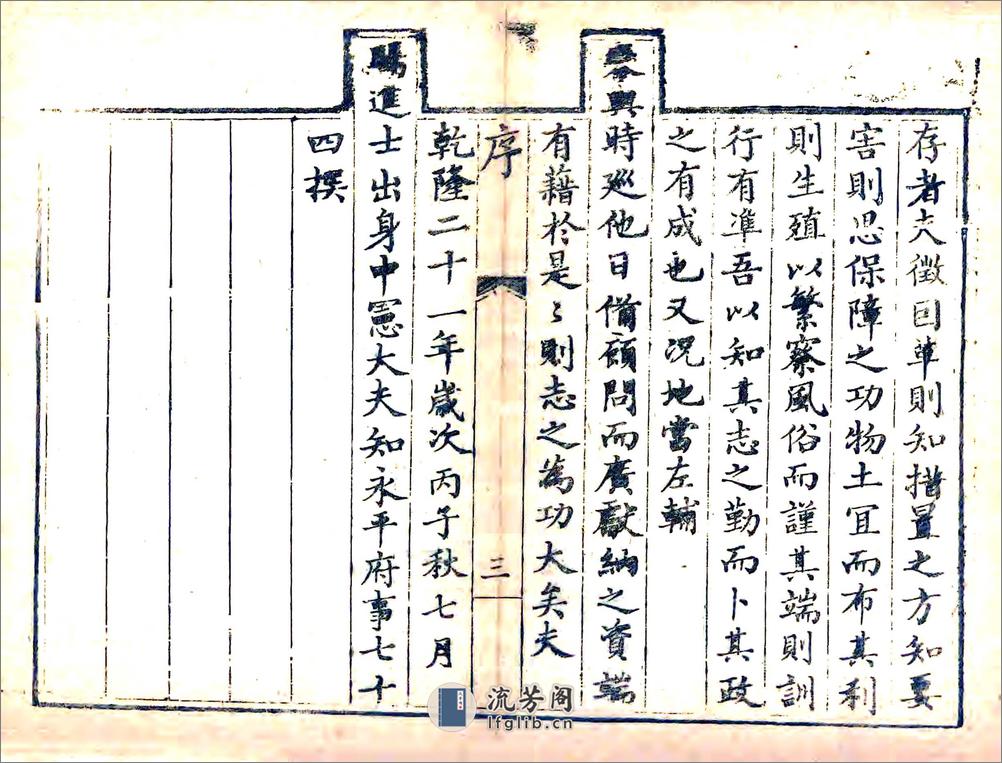 存者大徵因革則知措置之方知要
害則思保障之功物土宜而布其利
則生殖以繁察風俗而謹其端則訓
行有準吾以知其志之勤而卜其政
之有成也又況地當左輔
輿時廵他日備顧問而廣獻納之資端
有藉於是〻則志之為功大矣夫
序
三
乾隆二十一年歲次丙子秋七月
賜進士出身中憲大夫知永平府事七十
四撰
流芳阁
lfglib.cn